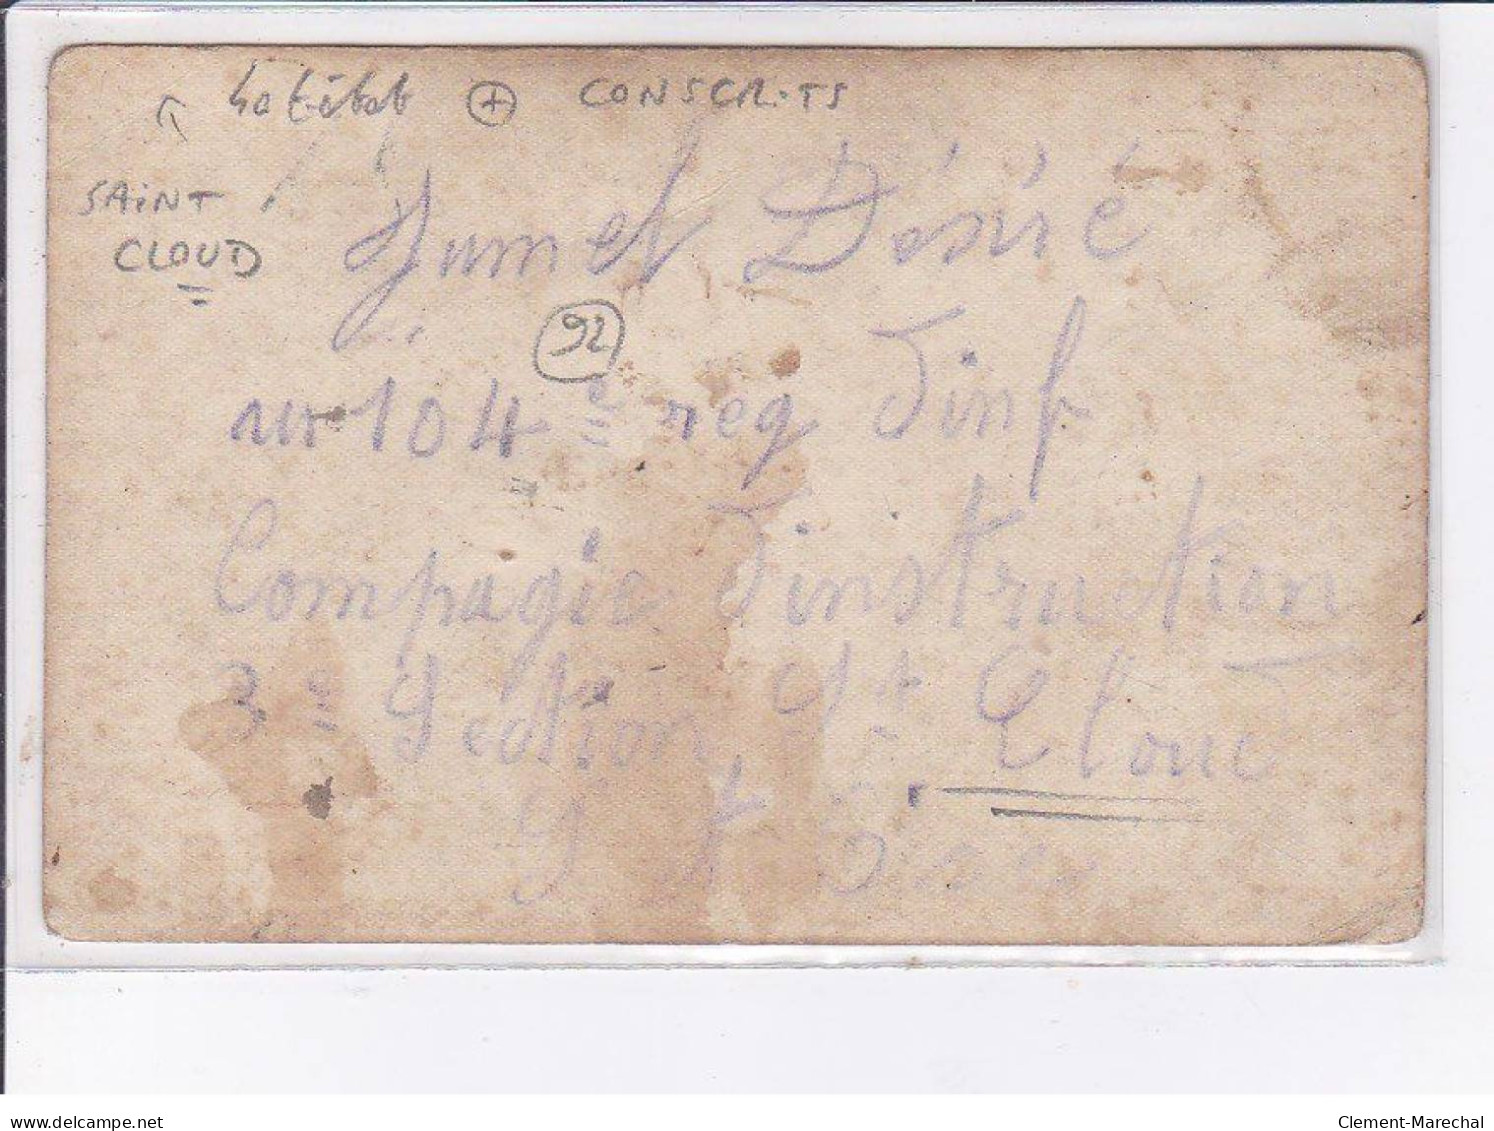 CONSCRITS
SAINT
CLOUD
Jumel Désiré
92
au 104e reg d'inf
Compagie d'instruction
3e Section, St Clou
S et Oise
delcampe.net
Clement-Marechal